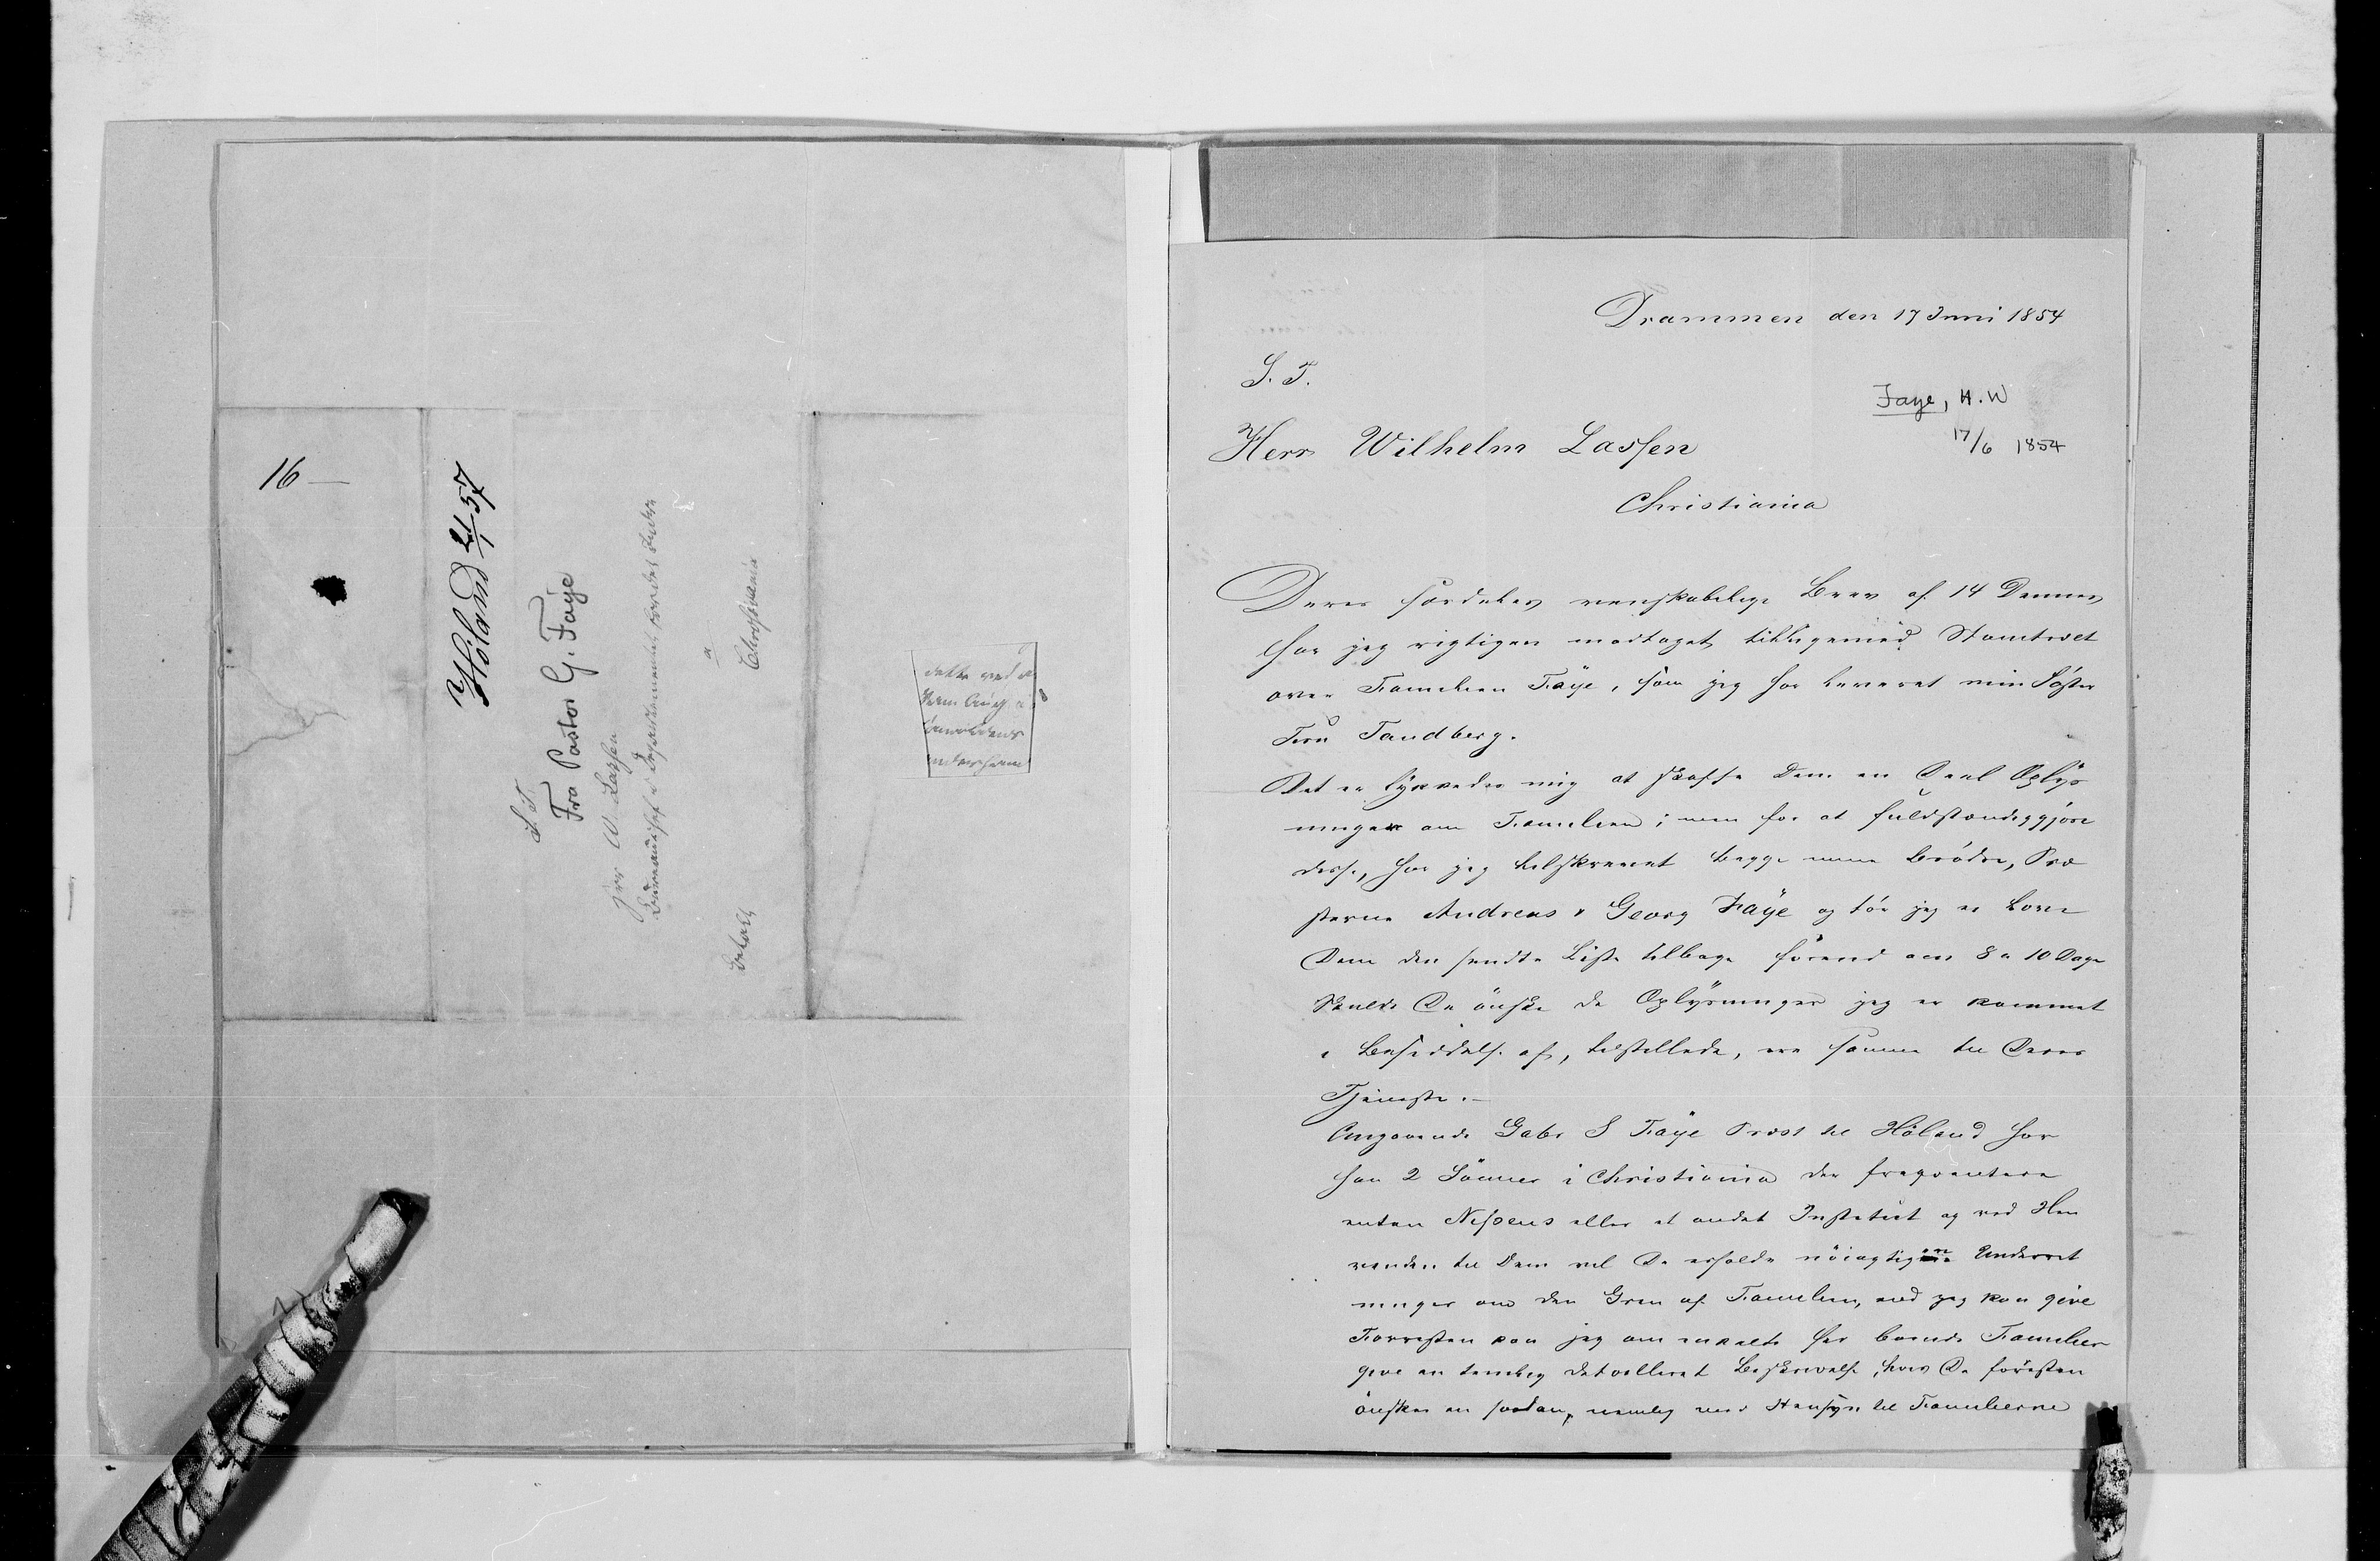 16 —
Höland 21/1 57
S. T.
Fra Pastor G. Faye
Herr W. Lassen
Bureauchef i Departementet for det Indre
a
Christiania
betalt
Drammen den 17 Juni 1854
S. T.
Faye, H. W
17/6 1854
Herr Wilhelm Lassen
Christiania
Deres særdeles venskabelige Brev af 14 Dennes
har jeg rigtigen modtaget tilligemed Stamtræet
over Familien Faÿe, som jeg har leveret min Söster
Fru Tandberg.
Det er lykkedes mig at skaffe Dem en Deel Oplÿs
ninger om Familien; men for at fuldstændiggjöre
disse, har jeg tilskrevet begge mine Brödre, Præ
sterne Andreas & Georg Faÿe og tör jeg ei love
Dem den sendte Liste tilbage förend om 8 a 10 Dage
Skulde De önske de Oplÿsninger jeg er kommet
i Besiddelse af, tilstillede, ere samme til Deres
Tjeneste. —
Angaaende Gabr S Faÿe Præst til Höland har
han 2 Sönner i Christiania der frequentere
enten Nissens eller et andet Institut og ved Hen
venden til Dem vil De erholde nöiagtigere Underret
ninger om den Green af Familien, end jeg kan give
Forresten kan jeg om enkelte her boende Familier
give en temelig detailleret Beskrivelse, hvis De forresten
önsker en saadan, nemlig med Hensyn til Familierne